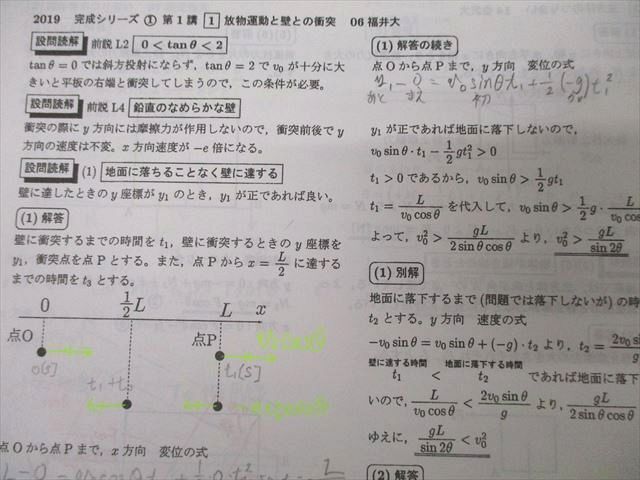 2019 完成シリーズ ① 第1講 1 放物運動と壁との衝突 06 福井大
設問読解 前説 L2 0 < tan θ < 2
tan θ = 0 では斜方投射にならず，tan θ = 2 で v₀ が十分に大
きいと平板の右端と衝突してしまうので，この条件が必要。
設問読解 前説 L4 鉛直のなめらかな壁
衝突の際に y 方向には摩擦力が作用しないので，衝突前後で y
方向の速度は不変。x 方向速度が −e 倍になる。
設問読解 (1) 地面に落ちることなく壁に達する
壁に達したときの y 座標が y₁ のとき，y₁ が正であれば良い。
(1) 解答
壁に衝突するまでの時間を t₁，壁に衝突するときの y 座標を
y₁，衝突点を点 P とする。また，点 P から x = L/2 に達する
までの時間を t₃ とする。
0 1/2 L L x
点O 点P
0[s] t₁[s]
点 O から点 P まで，x 方向 変位の式
(1) 解答の続き
点 O から点 P まで，y 方向 変位の式
y₁ − 0 = v₀ sin θ t₁ + 1/2 (−g) t₁²
y₁ が正であれば地面に落下しないので，
v₀ sin θ · t₁ − 1/2 gt₁² > 0
t₁ > 0 であるから，v₀ sin θ > 1/2 gt₁
t₁ = L/v₀ cos θ を代入して，v₀ sin θ > 1/2 g ·
よって，v₀² > gL/2 sin θ cos θ より，v₀² > gL/sin 2θ
(1) 別解
地面に落下するまで (問題では落下しないが) の時
t₂ とする。y 方向 速度の式
−v₀ sin θ = v₀ sin θ + (−g) · t₂ より，t₂ =
壁に達する時間 地面に落下する時間
t₁ < t₂ であれば地面に落下
いので，L/v₀ cos θ < 2v₀ sin θ/g より，gL/2 sin θ cos θ
ゆえに，gL/sin 2θ < v₀²
(2) 解答